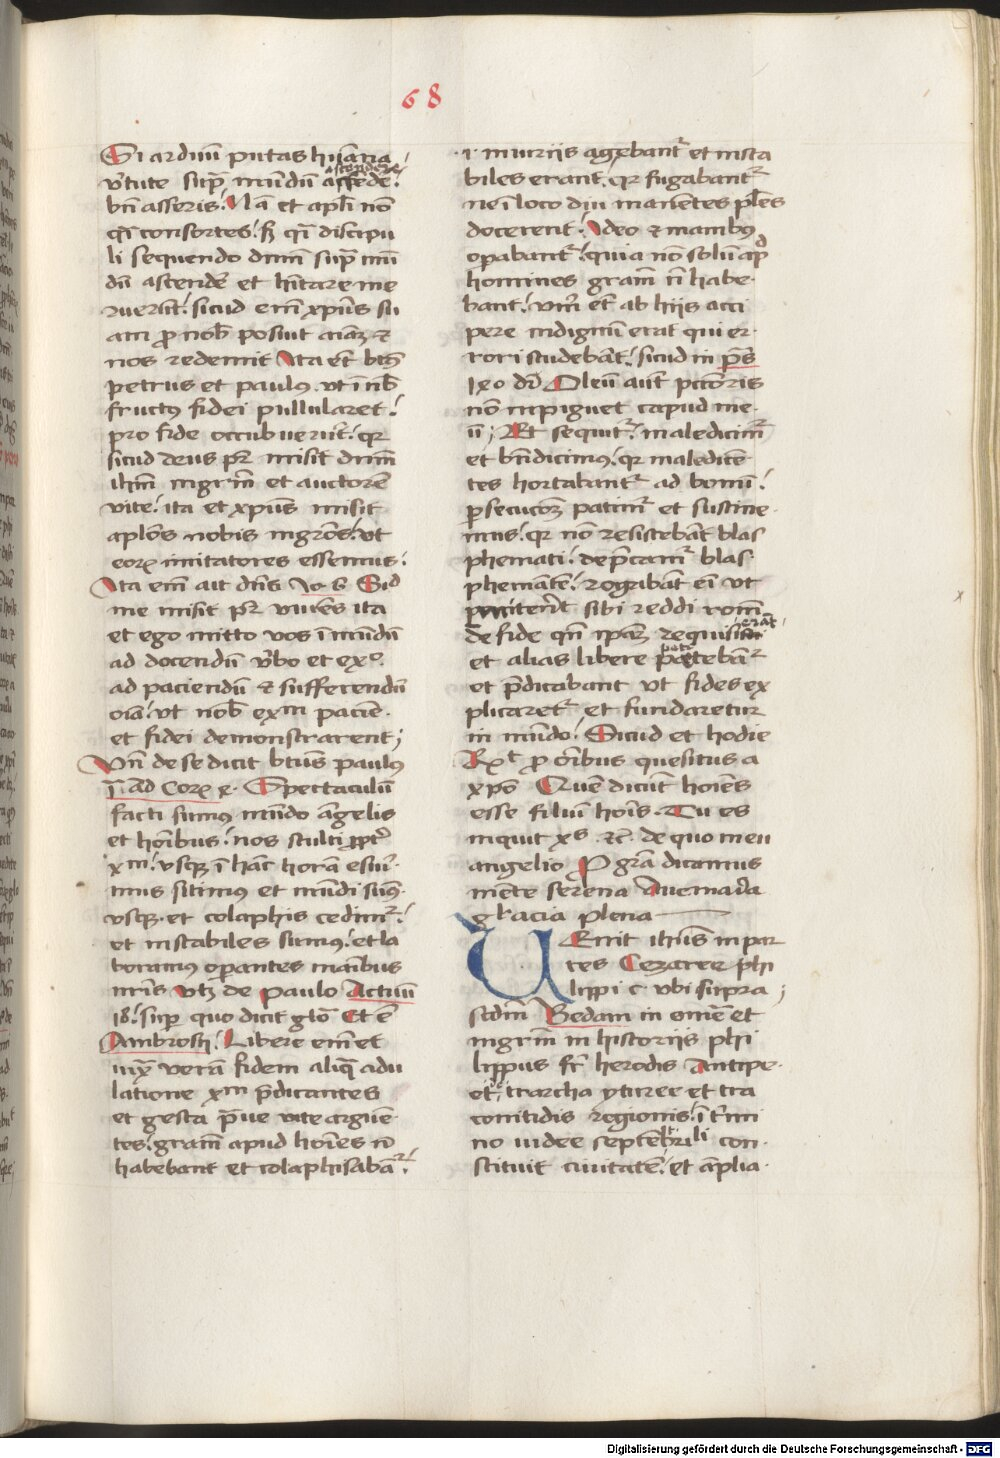 68
Si arduū putas hūana
v̄tute sup̄ mūdū ascendere
bn̄ asseris. Nā et apl̄i nō
qi̅ consortes. sꝫ qi̅ discipu
li sequendo dnm̄ sup̄ mū
dū ascendēr et hītare me
ruerūt. sicud em̄ xpūs su
am ꝓ nob̄ posuit aīaꝫ ⁊
nos redemit Ita et̄ btūs
petrus et paulꝰ. vt ī nob̄
fructꝰ fidei pullularet.
pro fide occubuerūt. qr
sicud deus pr̄ misit dnm̄
ihm̄ mgrm̄ et auctorē
vite. ita et xpūs misit
aplōs nobis mgrōs. vt
eoꝝ imitatores essemus.
Ita em̄ ait dn̄s Jo 6 Sicd
me misit pr̄ viuēs ita
et ego mitto vos ī mūdū
ad docendū v̄bo et exº.
ad paciendū ⁊ sufferendū
oīa. vt nob̄ exm paciē
et fidei demonstrarent;
Vn̄ de se dicit btūs paulꝰ
i̅ ad Coꝝ 4. Spectaculū
facti sumꝰ mūdo āgelis
et hoībus. nos stulti ꝓpt̄
xm. vsqꝫ ī hāc horā esuri
mus sitimꝰ et nudi sumꝰ
vsqꝫ. et colaphis cedimᷣ.
et instabiles sumꝰ. et la
boramꝰ oꝑantes maībus
nr̄is vtꝫ de paulo Actuū
18. sup̄ quo dicit glō Et ē
Ambrosij. Libere em̄ et
iuxᵃ verā fidem aliqᵃ adu
latione xm p̄dicantes
et gesta p̄ue vite arguē
tes. gram̄ apud hoīes n̄
habebant et colaphisabāᷣ.
.i. iniuriis agebantᷣ et insta
biles erant. qr fugabantᷣ
ne ī loco diu manētes pl̄es
docerent. Ideo ⁊ manibꝰ
oꝑabantᷣ. quia nō solū apᵈ
homines gram̄ n̄ habe
bant. vm̄ et̄ ab hiis acci
pere indignū erat qui er
rori studebāt. sicud in ps̄
140 dr̄ Oleū aūt pctōris
nō inpiguet capud me
ū; Et sequitᷣ. maledicimᷣ
et bn̄dicimꝰ. qr maledicē
tes hortabantᷣ ad bonū.
ꝑsecucōꝫ patimᷣ et sustine
mus. qr nō resistebāt blas
phemati. dep̄camᷣ blas
phemātē. rogabāt eī vt
sibi reddi rōm̄
de fide qn̄ ipāꝫ requisierāt
et alias libere patebāᷣ
et p̄dicabant vt fides ex
plicaretᷣ et fundaretur
in mūdo. Sicud et hodie
Rxᵗ ꝓ oībus quesitus a
xpō Quē dicūt hoīes
esse filiū hoīs. Tu es
inquit xs̄ ⁊c̄ de quo in eu
angelio P grā dicamus
mēte serena Auemaria
gracia plena
Uenit ihūs in par
tes Cezaree phi
lippi c̄ vbi supra;
scdm̄ Bedam in omē et
mgrm̄ in historijs phi
lippus fr̄ herodis Antipe
et tetrarcha yturee et tra
conitidis regionis. ī t̄mi
no iudee septētrili con
stituit ciuitatē. et āplia
Digitalisierung gefördert durch die Deutsche Forschungsgemeinschaft - DFG